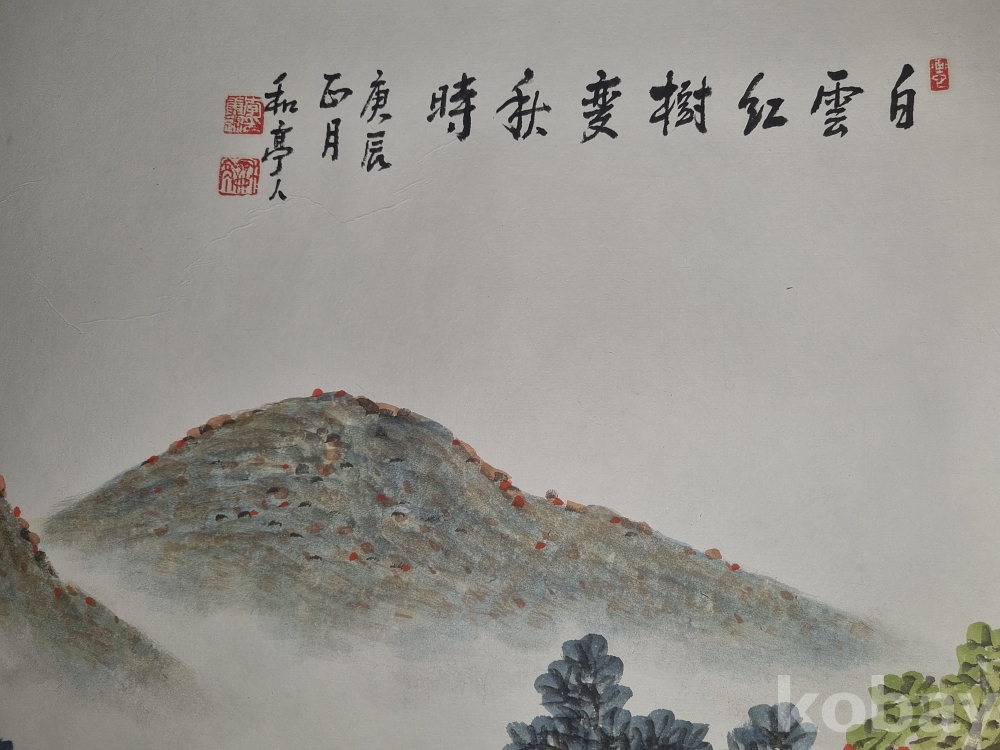 白雲紅樹變秋時
庚辰
正月
和亭人
kobay